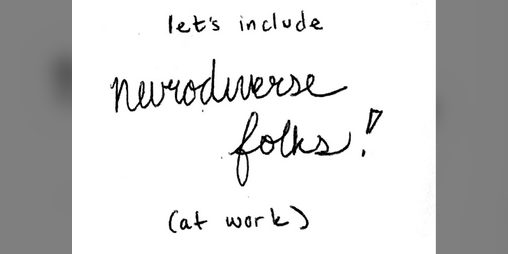 let's include
neurodiverse
folks!
(at work)